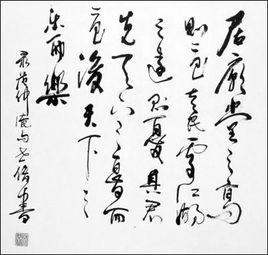 居廟堂之高
則憂其民處江湖
之遠則憂其君
先天下之憂而
憂後天下之
樂而樂
录范仲淹句書